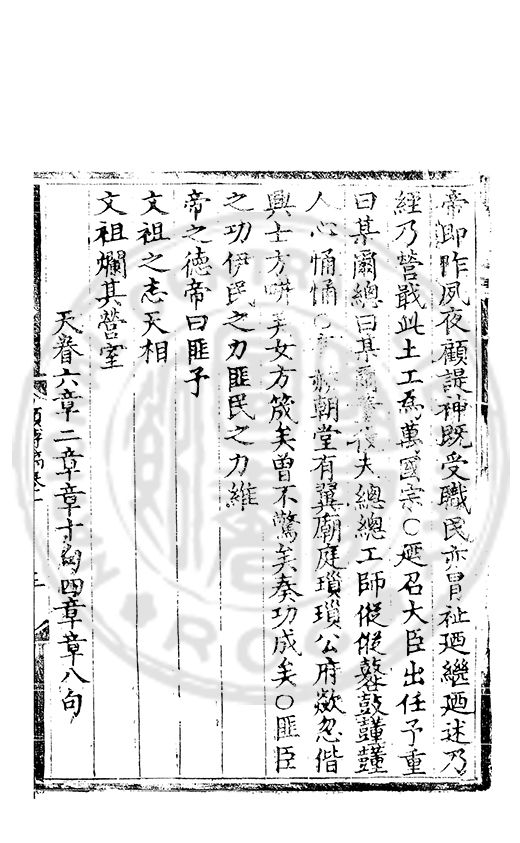 帝即阼夙夜顧諟神既受職民亦冒祉廼繼廼述乃
經乃營戢此土工為萬國宗○廼召大臣出任予重
曰某爾總曰某爾役夫總總工師傱傱鼛鼓韸韸
人心慵慵○朝堂有翼廟庭瑣瑣公府歘忽偕
興士方哄矣女方筬矣曾不驚矣奏功成矣○匪臣
之功伊民之力匪民之力維
帝之德帝曰匪予
文祖之志天相
文祖爛其營室
天眷六章二章章十句四章章八句